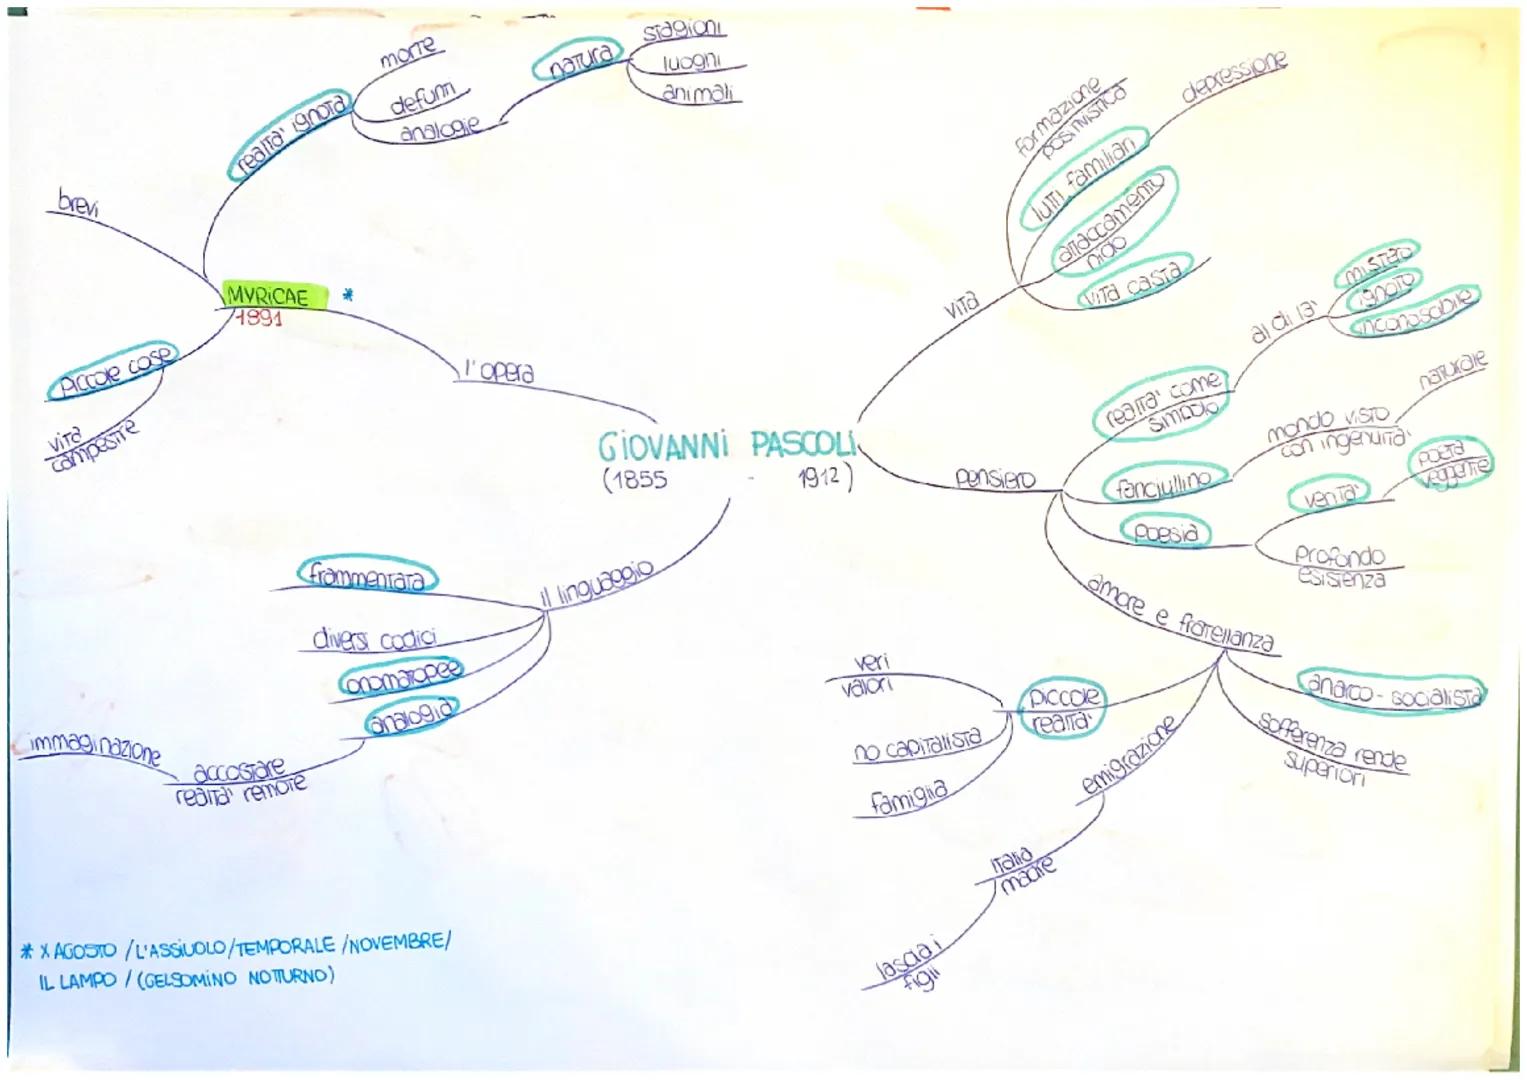 GIOVANNI PASCOLI
(1855 - 1912)
l'opera
MYRICAE *
1891
brevi
realtà ignota
morte
defunti
analogie
natura
stagioni
luoghi
animali
piccole cose
vita
campestre
il linguaggio
frammentata
diversi codici
onomatopee
analogia
accostare
realtà remote
immaginazione
vita
formazione
positivistica
lutti familiari
depressione
attaccamento
nido
vita casta
pensiero
realtà come
simbolo
al di là
mistero
ignoto
inconoscibile
fanciullino
mondo visto
con ingenuità
naturale
poesia
verità
poeta
veggente
profondo
esistenza
amore e fratellanza
anarco-socialista
sofferenza rende
superiori
emigrazione
Italia
madre
lascia i
figli
piccole
realtà
veri
valori
no capitalista
famiglia
* X AGOSTO / L'ASSIUOLO / TEMPORALE / NOVEMBRE /
IL LAMPO / (GELSOMINO NOTTURNO)